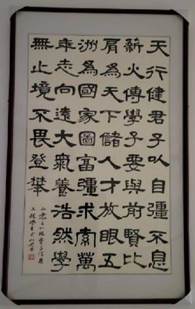 天行健君子以自彊不息
薪火傳學子要與前賢比
肩為天下儲人才放眼五
洲為國家圖富彊求索萬
年志向遠大氣養浩然學
無止境不畏登攀